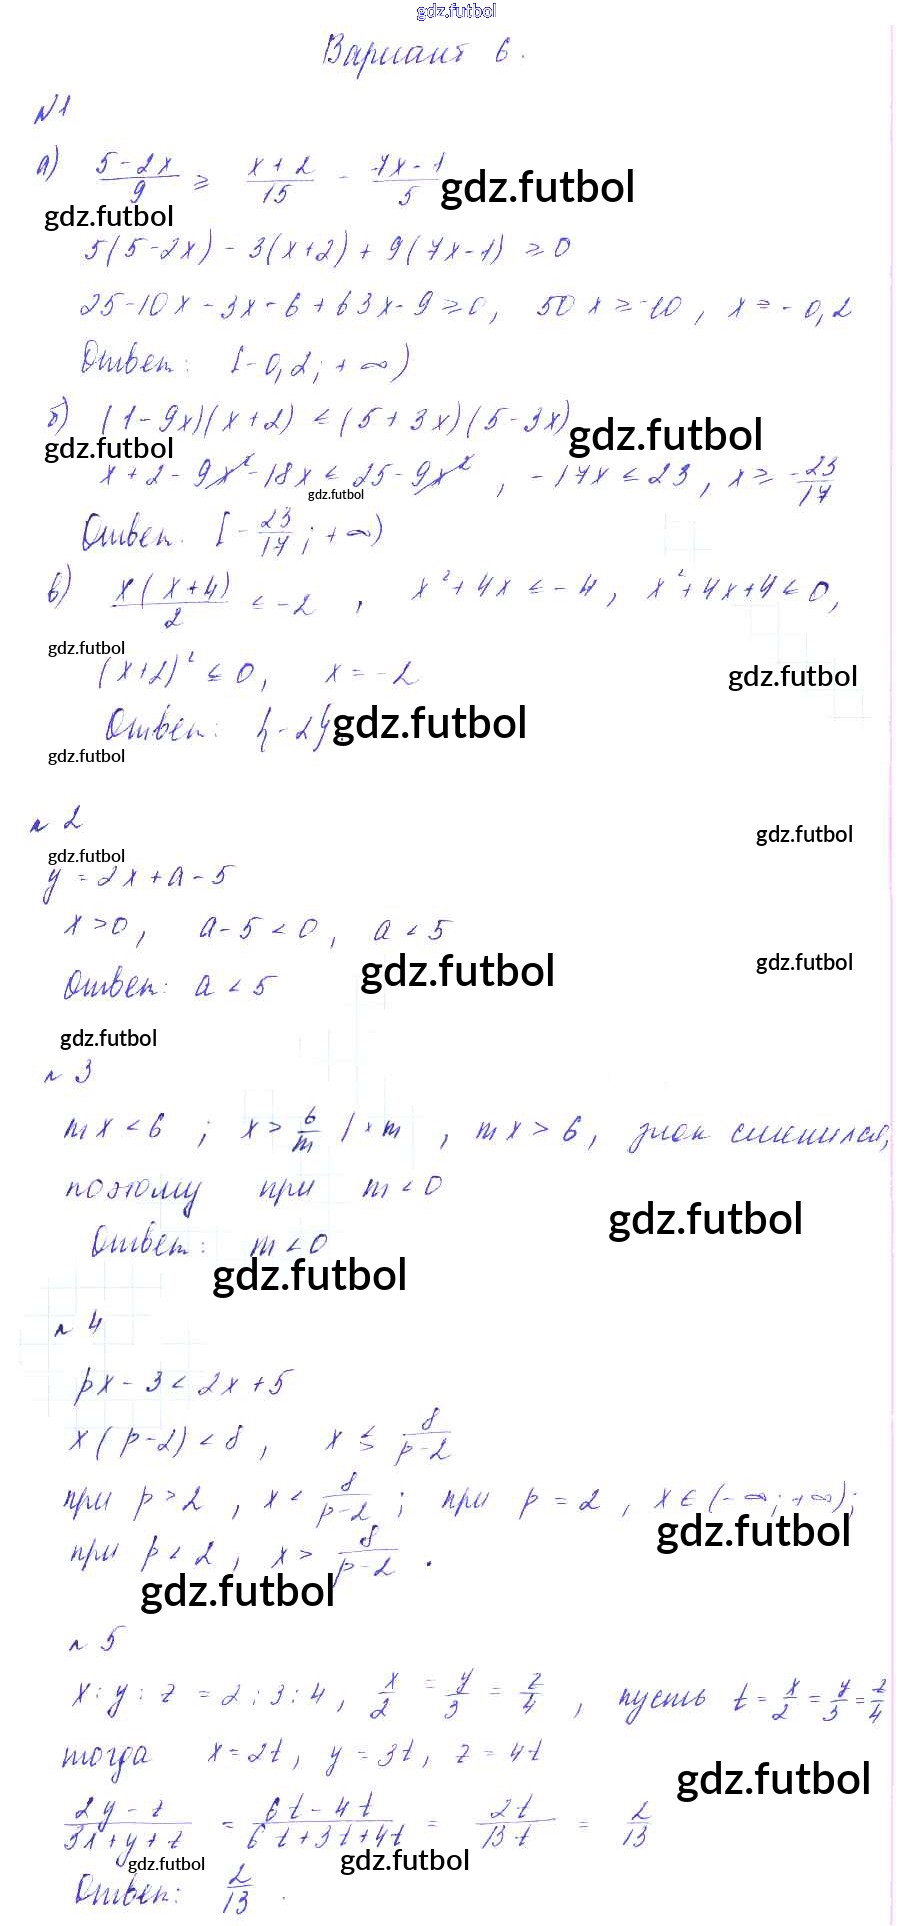 gdz.futbol
Вариант 6.
N1
а) (5-2x)/9 ≥ (x+2)/15 - (7x-1)/5 gdz.futbol
gdz.futbol
5(5-2x) - 3(x+2) + 9(7x-1) ≥ 0
25-10x-3x-6+63x-9≥0, 50x≥-10, x≥-0,2
Ответ: [-0,2; +∞)
б) (1-9x)(x+2) ≤ (5+3x)(5-3x) gdz.futbol
gdz.futbol
x+2-9x²-18x ≤ 25-9x², -17x ≤ 23, x ≥ -23/17
gdz.futbol
Ответ. [-23/17; +∞)
в) x(x+4)/2 ≤ -2, x²+4x ≤ -4, x²+4x+4 ≤ 0,
gdz.futbol
(x+2)² ≤ 0, x = -2 gdz.futbol
Ответ: {-2} gdz.futbol
gdz.futbol
N 2
gdz.futbol
gdz.futbol
y = 2x + a - 5
x > 0, a - 5 < 0, a < 5
gdz.futbol gdz.futbol
Ответ: a < 5
gdz.futbol
N 3
mx < 6; x > 6/m | · m, mx > 6, знак сменился,
поэтому при m < 0
gdz.futbol
Ответ: m < 0
gdz.futbol
N 4
px - 3 < 2x + 5
x(p-2) < 8, x ≶ 8/(p-2)
при p > 2, x < 8/(p-2); при p = 2, x ∈ (-∞; +∞);
gdz.futbol
при p < 2, x > 8/(p-2).
gdz.futbol
N 5
x : y : z = 2 : 3 : 4, x/2 = y/3 = z/4, пусть t = x/2 = y/3 = z/4
тогда x = 2t, y = 3t, z = 4t
gdz.futbol
(2y-z)/(3x+y+z) = (6t-4t)/(6t+3t+4t) = 2t/13t = 2/13
gdz.futbol gdz.futbol
Ответ: 2/13.